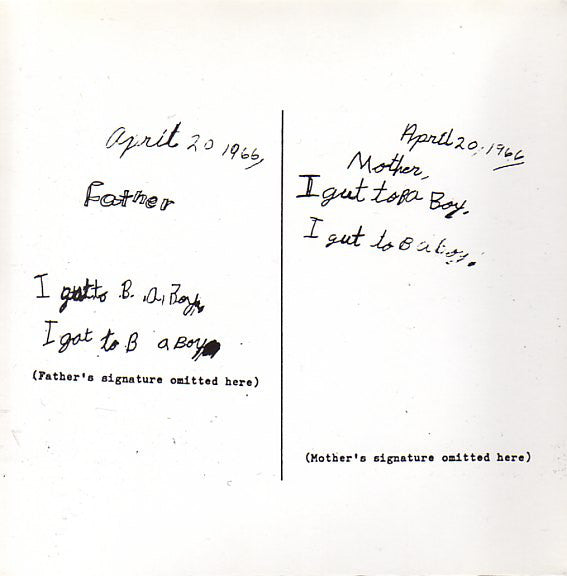 April 20 1966,
Father
I gut to B. a, Boy,
I got to B a Boy
(Father's signature omitted here)
April 20, 1966
Mother,
I gut to Ba Boy.
I gut to B a boy.
(Mother's signature omitted here)